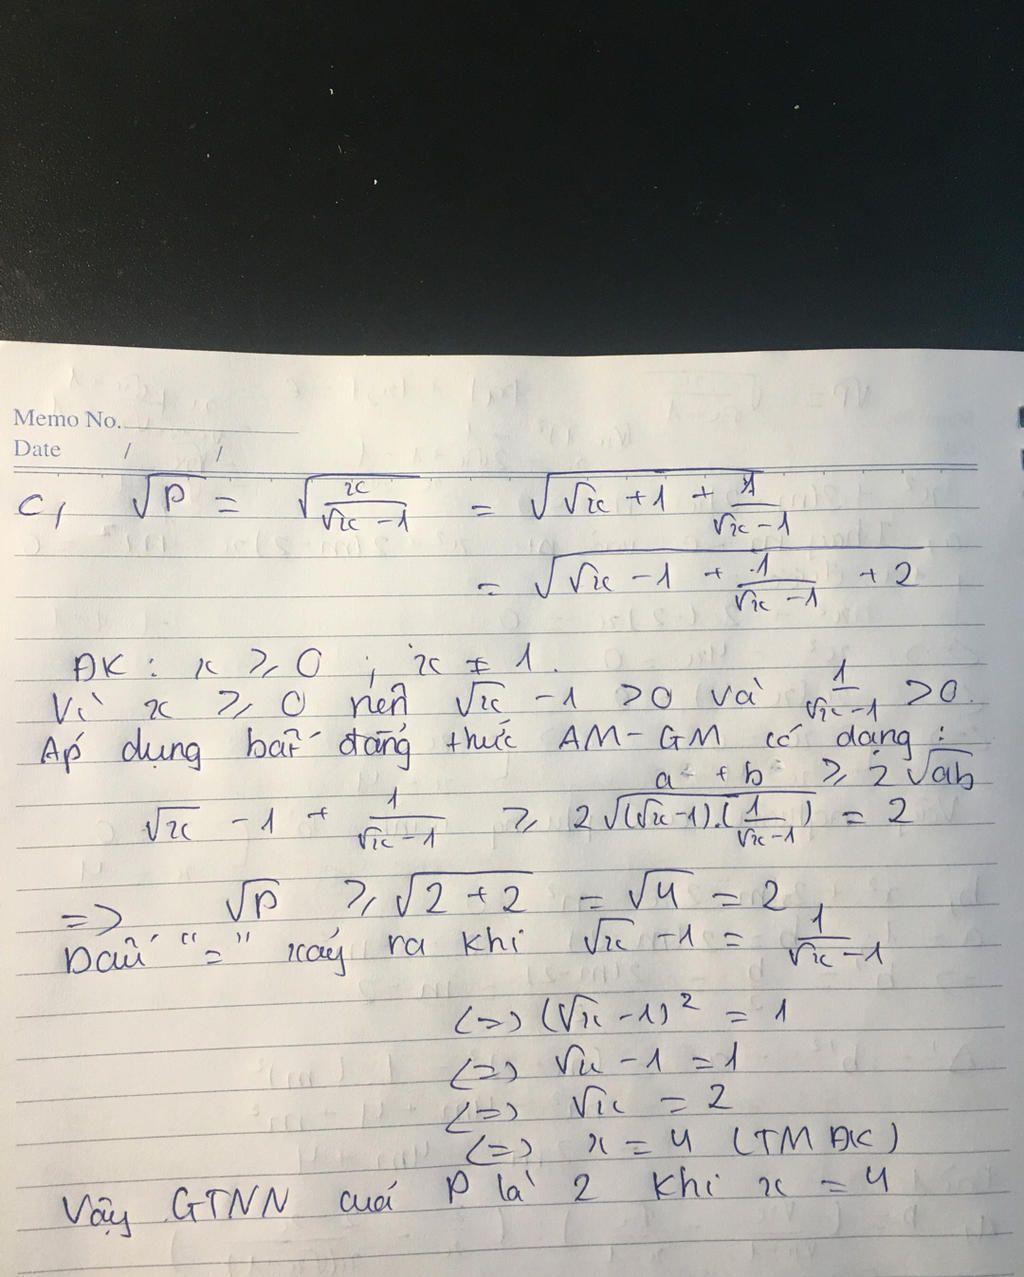 Memo No.
Date / /
c, √P = √(x/(√x - 1)) = √(√x + 1 + 1/(√x - 1))
= √(√x - 1 + 1/(√x - 1) + 2)
ĐK : x ⩾ 0 ; x ≠ 1.
Vì x ⩾ 0 nên √x - 1 > 0 và 1/(√x - 1) > 0.
Áp dụng bất đẳng thức AM-GM có dạng :
a + b ⩾ 2√ab
√x - 1 + 1/(√x - 1) ⩾ 2√((√x - 1).(1/(√x - 1))) = 2
=> √P ⩾ √(2 + 2) = √4 = 2
Dấu "=" xảy ra khi √x - 1 = 1/(√x - 1)
(=) (√x - 1)² = 1
(=) √x - 1 = 1
(=) √x = 2
(=) x = 4 (TM ĐK)
Vậy GTNN của P là 2 khi x = 4